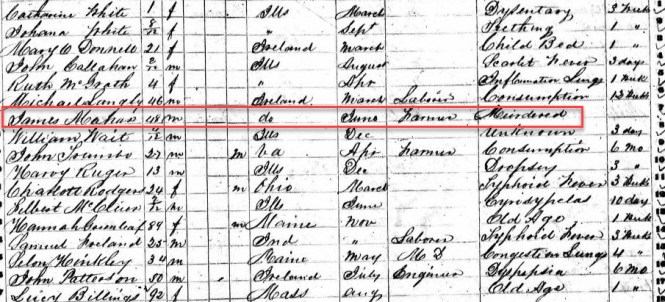 Catharine White 1 f Ills March Dysentary 3 Weeks
Johana White 8/12 f " Sept Teething 1 "
Mary O Donnell 21 f Ireland March Child Bed 1 "
John Callahan m Ills August Scarlet Fever 3 days
Ruth McGrath 4 f " Apr Inflamation Lungs 1 Week
Michael Langly 46 m Ireland March Laborer Consumption 13 Weeks
James Mahar 48 m do June Farmer Murdered
William Wait m Ills Dec Unknown 3 day
John 27 m m Va Apr Farmer Consumption 6 Mo
Harry Ruger 13 m Ills Dec Dropsey 3 "
Charlott Rodgers 24 f m Ohio March Typhoid Fever 3 Weeks
McClure m Ills June 10 day
Hannah 84 f m Maine Nov Old Age 1 Week
Samuel 25 m Ind " Laborer Typhoid Fever 3 Weeks
Hinkley 34 m Maine May M D Congestion Lungs 4 "
John Patterson 50 m Ireland July Engineer Dyspepsia 6 Mo
Lucy Billings 92 f Mass Aug Old Age 1 "